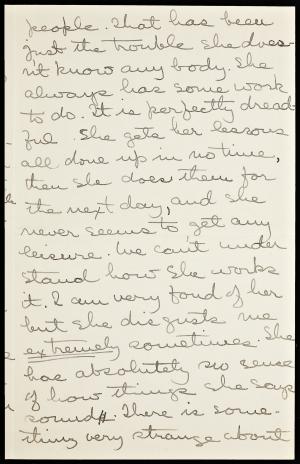 people. That has been
just the trouble she does-
n't know any body. She
always has some work
to do. It is perfectly dread-
ful. She gets her lessons
all done up in no time,
then she does them for
the next day, and she
never seems to get any
leisure. We can't under
stand how she works
it. I am very fond of her
but she disgusts me
extremely sometimes. She
has absolutely no sense
of how things she says
sound. There is some-
thing very strange about